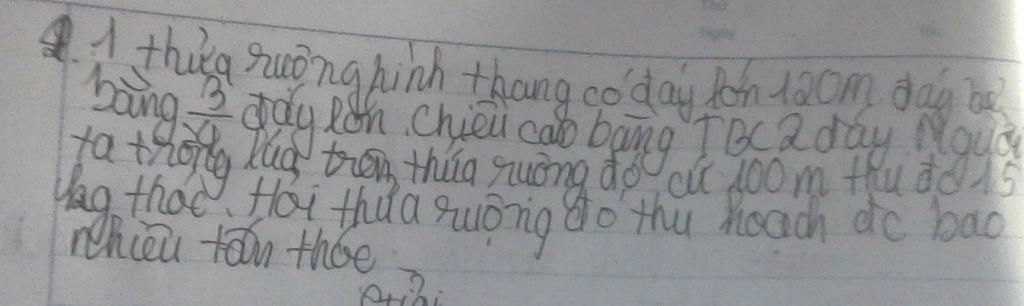 2. 1 thửa ruộng hình thang có đáy lớn 120m đáy bé
bằng 3/4 đáy lớn. Chiều cao bằng TBC 2 đáy Người
ta trồng lúa trên thửa ruộng đó cứ 100m thu đc 15
kg thóc. Hỏi thửa ruộng đó thu hoạch đc bao
nhiêu tấn thóc